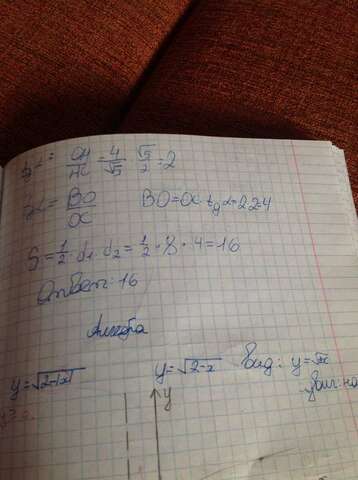 tg α = CH/HC = 4/√5 · √5/2 = 2
tg α = BO/OC BO = OC · tg α = 2·2=4
S = 1/2 · d1 · d2 = 1/2 · 8 · 4 = 16
Ответ: 16
Алгебра
y=√2-|x| y=√2-x Вид: y=√x
y